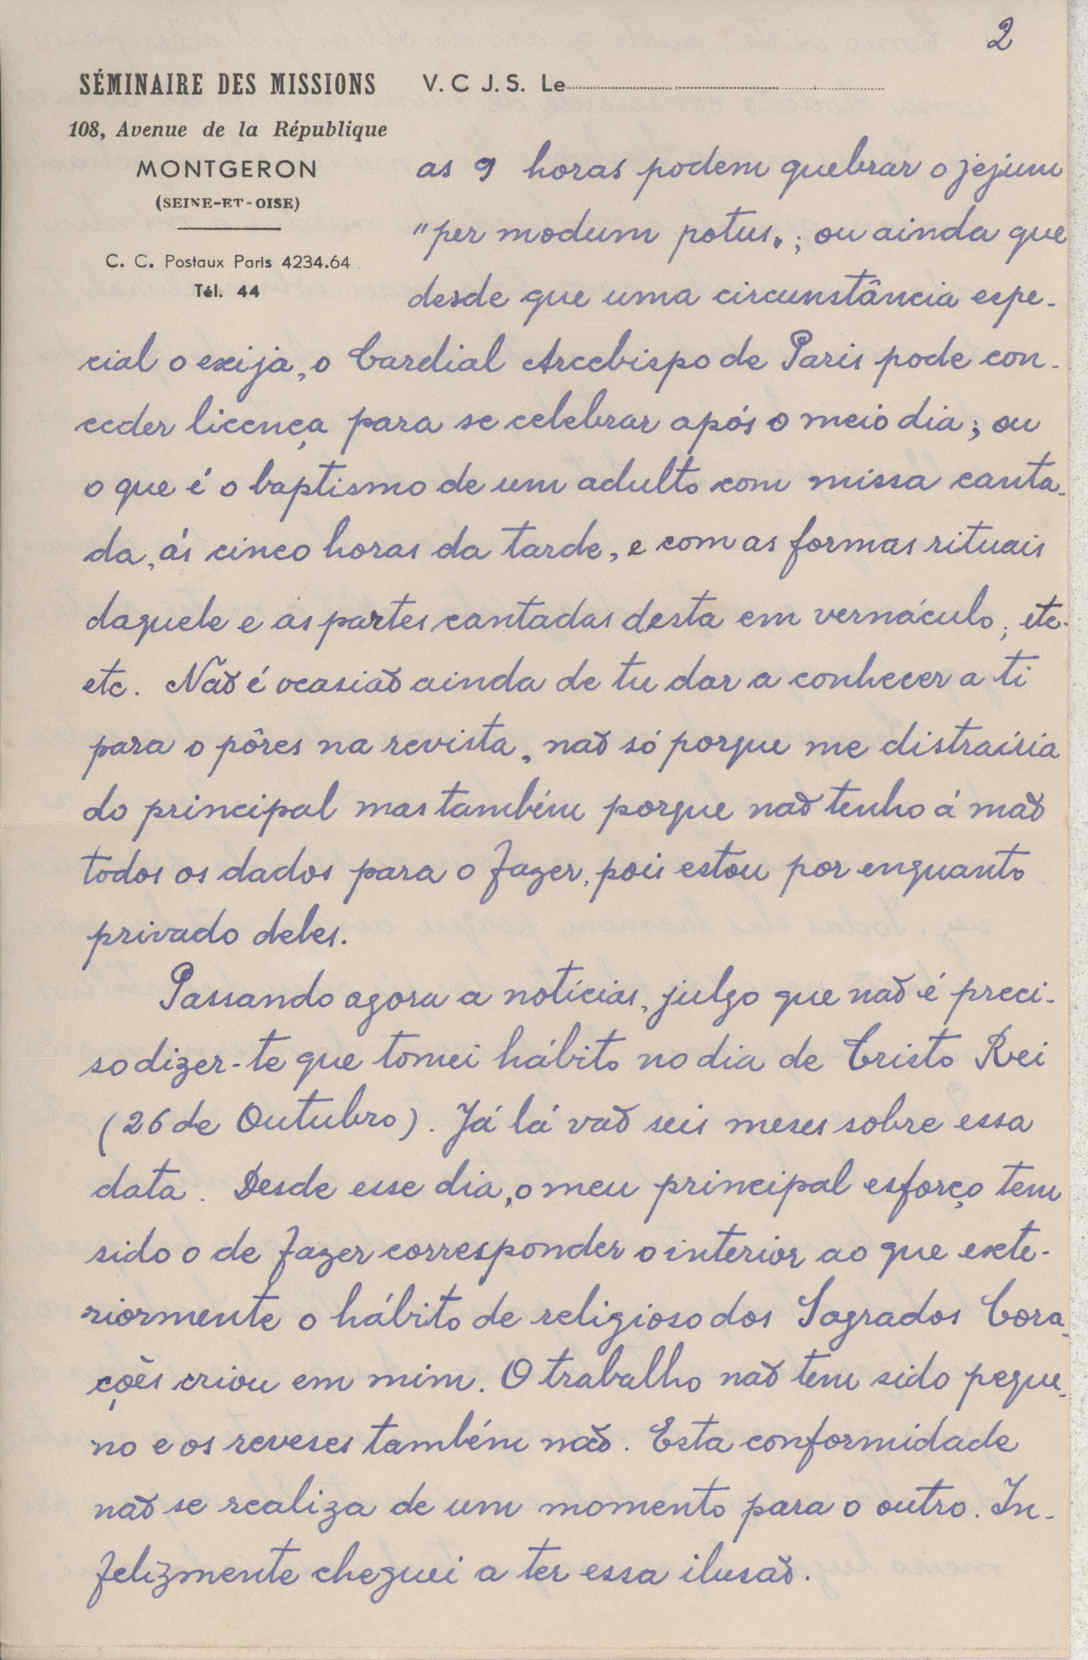 2
SÉMINAIRE DES MISSIONS
108, Avenue de la République
MONTGERON
(SEINE-ET-OISE)
C. C. Postaux Paris 4234.64
Tél. 44
V. C J. S. Le
as 9 horas podem quebrar o jejum
"per modum potus„; ou ainda que
desde que uma circunstância espe-
cial o exija, o Cardial Arcebispo de Paris pode con-
ceder licença para se celebrar após o meio dia; ou
o que é o baptismo de um adulto com missa canta-
da, ás cinco horas da tarde, e com as formas rituais
daquele e as partes cantadas desta em vernáculo; etc.
etc. Não é ocasião ainda de tu dar a conhecer a ti
para o pôres na revista, não só porque me distrairia
do principal mas também porque não tenho á mão
todos os dados para o fazer, pois estou por enquanto
privado deles.
Passando agora a notícias, julgo que não é preci-
so dizer-te que tomei hábito no dia de Cristo Rei
(26 de Outubro). Já lá vão seis meses sobre essa
data. Desde esse dia, o meu principal esforço tem
sido o de fazer corresponder o interior ao que exte-
riormente o hábito de religioso dos Sagrados Cora-
ções criou em mim. O trabalho não tem sido peque-
no e os reveses também não. Esta conformidade
não se realiza de um momento para o outro. In-
felizmente cheguei a ter essa ilusão.